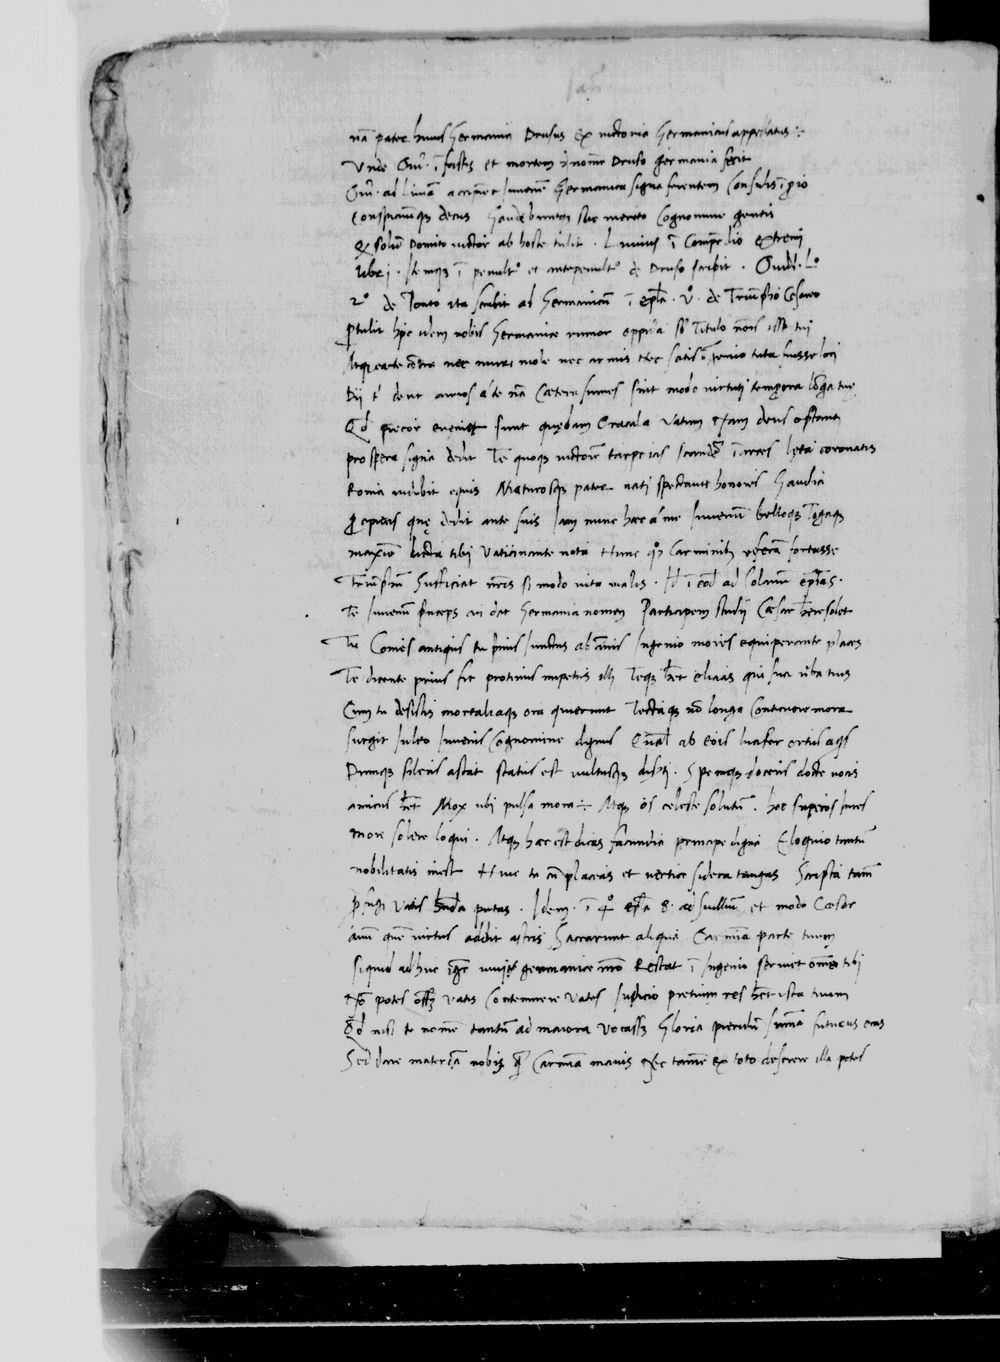 nā pater huius Germanici Drusus ex uictoria Germanicus appellatus
Vnde Oui. ī fastis et mortem ī nome Druso germania fecit
Oui. ad Liuiā accipiet Iuuenē Germanica signa ferentem Consulis
Conspicuūq; decus Gaudebuntq; suo merito Cognomine gentis
Q solū Domito uictor ab hoste tulit . Liuius ī Comp. extremi
libri . Itemq; ī penult° et antepenult° de Druso scribit . Ouid. L°
2° de Ponto ita scribit ad Germanicū ī epla . de Triūpho Cesareo
Ptulit hpc idem nobis Germanice rumor oppida sb Titulo nōis isse tui
Atq; ea te cōtra nec muri mole nec armis Nec satis ī genio tuta fuisse loci
Dii t' dent annos a te nā Cætera sumes sint modo uirtuti tempora lōga tuę
Qd precor eueniet sunt quędam Oracula vatum Nam deus optanti
prospera signa dedit Te quoq; uictorē tarpeias scandē ī arces lęta coronatis
Roma uidebit equis Maturosq; pater nati spectauit honores Gaudia
p̄cipiens quę dedit ante suis Iam nunc hæc a me Iuuenū belloq; Togaq;
maxīe dicta tibi Vaticinante nota Hunc q° Carminib; referā fortasse
triūphū Sufficiat nr̄is si modo vita malis . It ī eod ad Solanū
Te Iuuenū p̄nceps cui dat Germania nomen Participem studii Cæsar h̄ere solet
Tu Comes antiquus tu p̄mis Iunctus ab ānis Ingenio mores equiperante places
Te dicente prius fit protinus impetus illi Teq; h̄et eliciās qui sua uerba tuis
Cum tu desistis mortaliaq; ora quierunt Tectaq; nō longa Conticuere mora
surgit Iuleo Iuuenis Cognomine dignus Qualis ab eois lucifer ortus aq̄s
Dumq; silens astat status est uultusq; diserti . Spemq; docens docte uocis
amictus h̄et Mox ubi pulsa mora ē Atq; os celeste solutū . hoc superos Iures
more solere loqui . Atq; hæc est dicas facundia principe digna Eloquio tantū
nobilitatis inest Huic tu cū placeas et uertice sidera tangas Scripta tam̄
p̄fugi vatis h̄nda putas . Idem . ī 4° epl̄a 8. ad suillium et modo Cæsar
auū quē uirtus addit astris Sacrarunt aliqua Carmīa parte tuum
siquid adhuc igr̄ uiui germanice nr̄o Restat ī Ingenio seruiet omne tibi
Nō potes off. vatis Contemnere vates Iudicio pretium res h̄et ista tuum
Qd nisi te nomē tantū ad maiora vocass; Gloria pieridū sūma futurus eras
Sed dare materiā nobis q̄ Carmīa mauis Nec tam̄ ex toto deserere illa potes